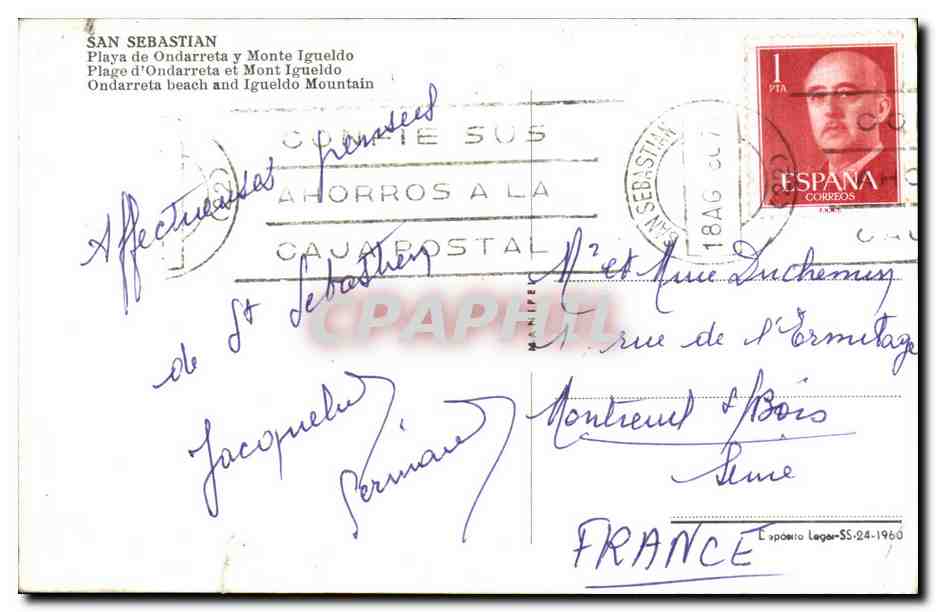 SAN SEBASTIAN
Playa de Ondarreta y Monte Igueldo
Plage d'Ondarreta et Mont Igueldo
Ondarreta beach and Igueldo Mountain
CONFIE SUS
AHORROS A LA
CAJA POSTAL
SAN SEBASTIAN
18 AG
1
PTA
ESPAÑA
CORREOS
Affectueuses pensées
de St Sébastien
Jacqueline
Germaine
MANIPEL
CPAPHIL
Mr et Mme Duchemin
rue de l'Ermitage
Montreuil s/Bois
Seine
FRANCE
Depósito Legal-SS-24-1960